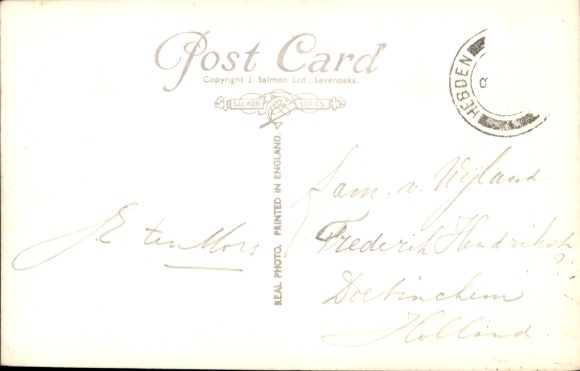 Post Card
Copyright J. Salmon Ltd., Sevenoaks.
SALMON SERIES
HEBDEN
8
REAL PHOTO. PRINTED IN ENGLAND.
E. ten Mors
Fam. v. Wijland.
Frederik Hendrikstr
?
Doetinchem
Holland.